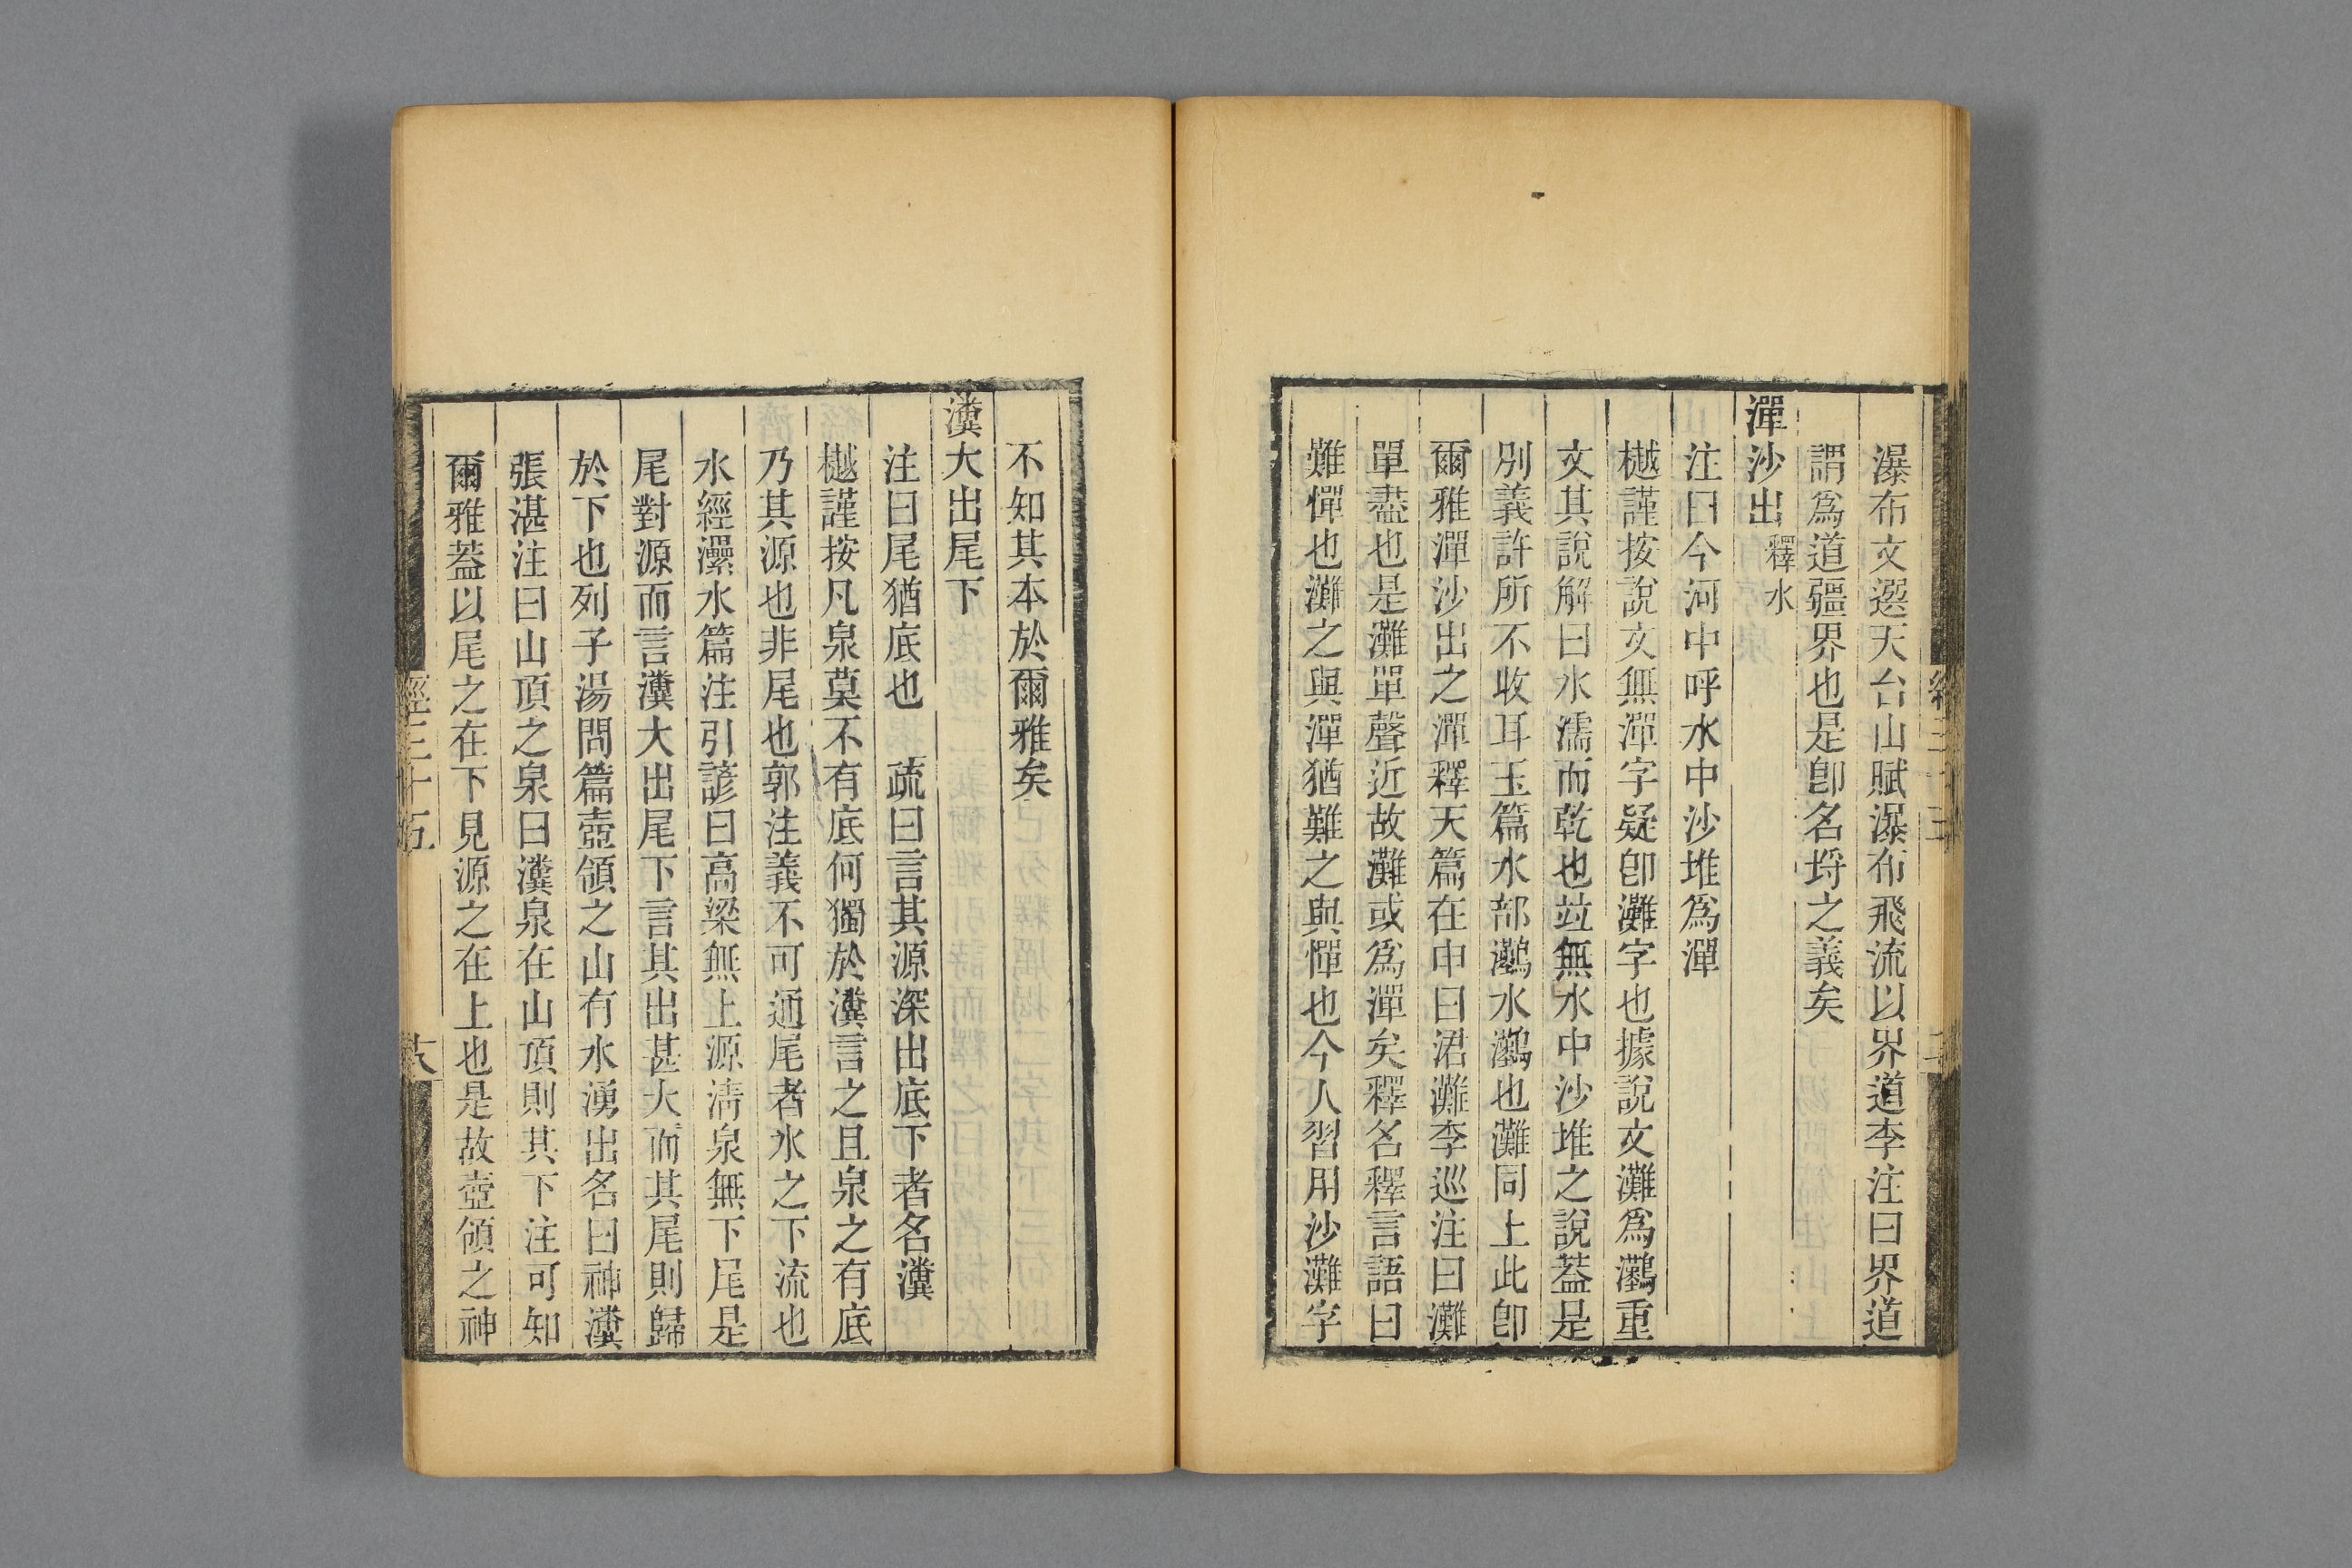 瀑布文選天台山賦瀑布飛流以界道李注曰界道
謂爲道疆界也是卽名埒之義矣
潬沙出釋水
注曰今河中呼水中沙堆爲潬
樾謹按說文無潬字疑卽灘字也據說文灘爲灘重
文其說解曰水濡而乾也竝無水中沙堆之說葢是
別義許所不收耳玉篇水部灘水灘也灘同上此卽
爾雅潬沙出之潬釋天篇在申曰涒灘李巡注曰灘
單盡也是灘單聲近故灘或爲潬矣釋名釋言語曰
難憚也灘之與潬猶難之與憚也今人習用沙灘字
不知其本於爾雅矣
瀵大出尾下
注曰尾猶底也 疏曰言其源深出底下者名瀵
樾謹按凡泉莫不有底何獨於瀵言之且泉之有底
乃其源也非尾也郭注義不可通尾者水之下流也
水經灅水篇注引諺曰高梁無上源淸泉無下尾是
尾對源而言瀵大出尾下言其出甚大而其尾則歸
於下也列子湯問篇壺領之山有水湧出名曰神瀵
張湛注曰山頂之泉曰瀵泉在山頂則其下注可知
爾雅葢以尾之在下見源之在上也是故壺領之神
經三十五